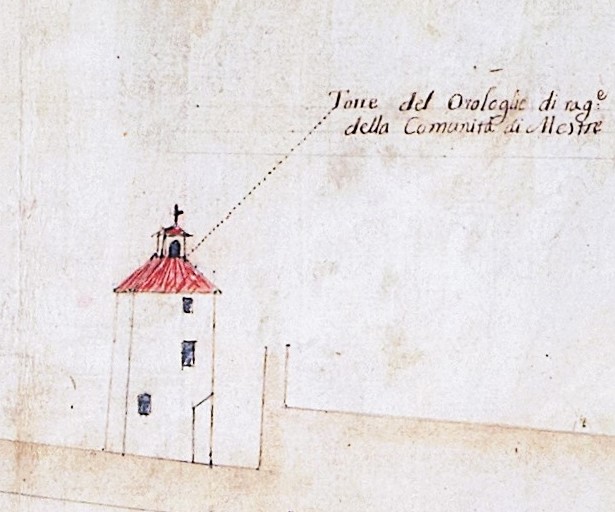 Torre del Orologlio di rag.e
della Comunità di Mestre